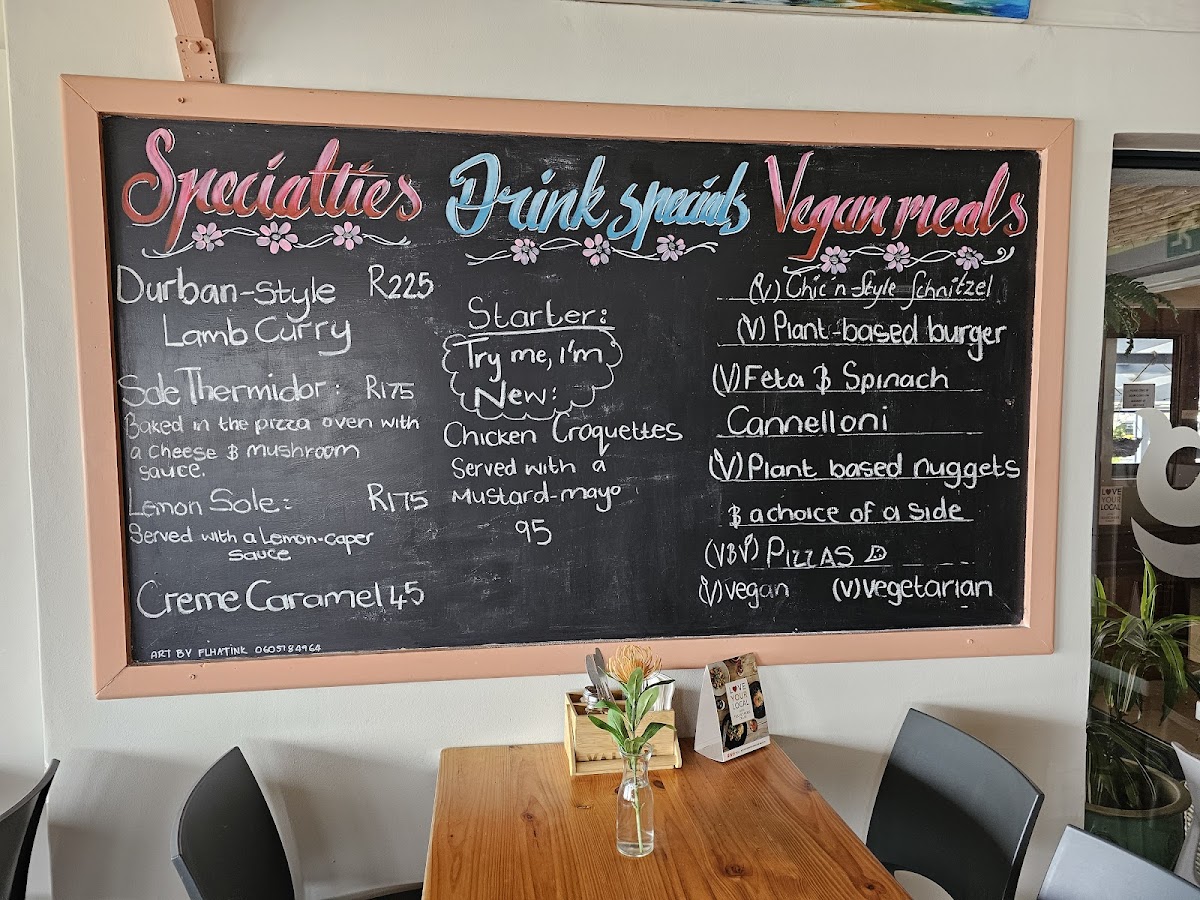 Specialties
Durban-Style R225
Lamb Curry
Sole Thermidor: R175
Baked in the pizza oven with
a cheese & mushroom
sauce.
Lemon Sole: R175
Served with a Lemon-caper
sauce
Creme Caramel 45
ART BY FLHATINK 0605184964
Drink specials
Starter:
Try me, I'm
New:
Chicken Croquettes
Served with a
Mustard-mayo
95
Vegan meals
(V) Chic n-Style Schnitzel
(V) Plant-based burger
(V) Feta & Spinach
Cannelloni
(V) Plant based nuggets
& a choice of a side
(V&V) PIZZAS
(V) Vegan (v) Vegetarian
LOVE
YOUR
LOCAL
LOVE
YOUR
LOCAL